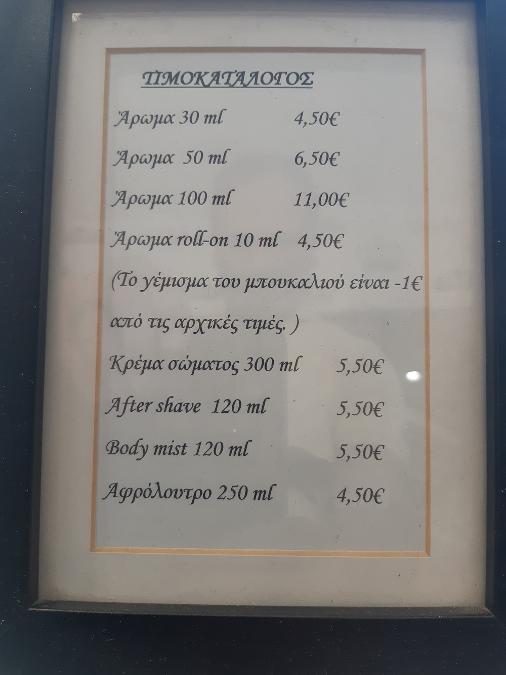 ΤΙΜΟΚΑΤΑΛΟΓΟΣ
Άρωμα 30 ml 4,50€
Άρωμα 50 ml 6,50€
Άρωμα 100 ml 11,00€
Άρωμα roll-on 10 ml 4,50€
(Το γέμισμα του μπουκαλιού είναι -1€
από τις αρχικές τιμές. )
Κρέμα σώματος 300 ml 5,50€
After shave 120 ml 5,50€
Body mist 120 ml 5,50€
Αφρόλουτρο 250 ml 4,50€